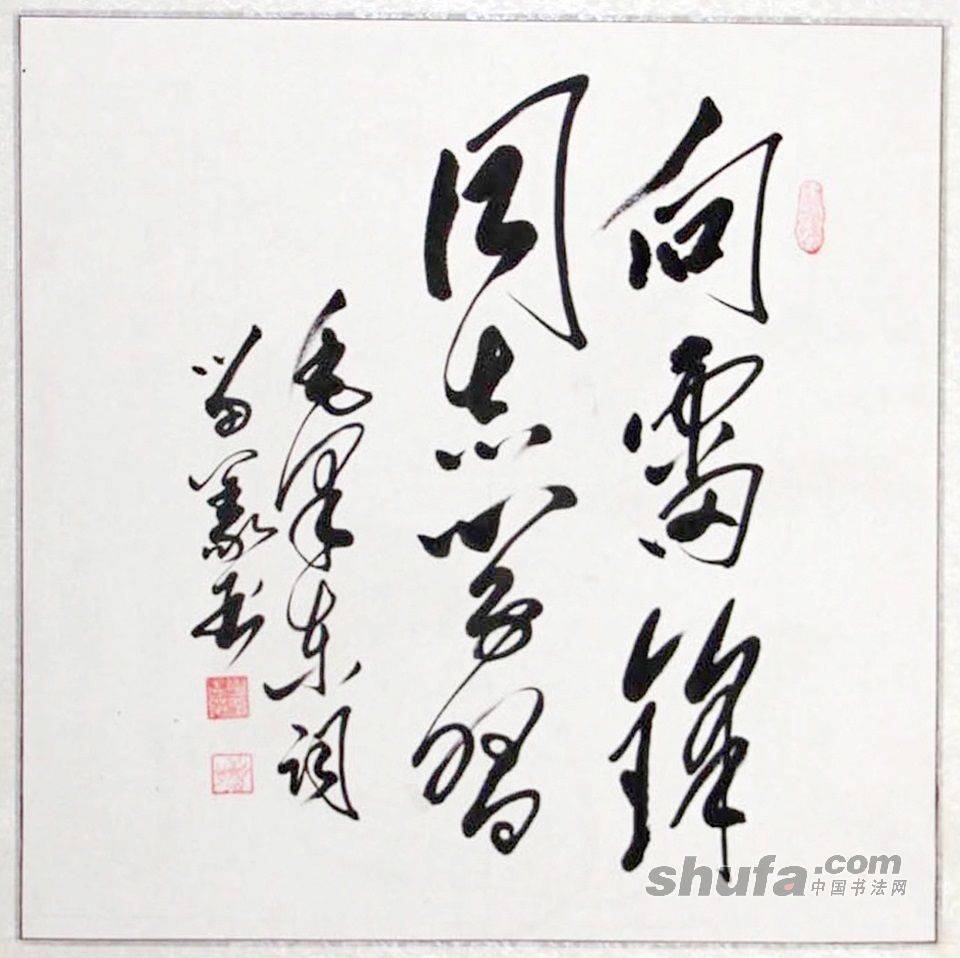 向雷锋
同志学习
毛泽东词
义书
shufa.com
中国书法网